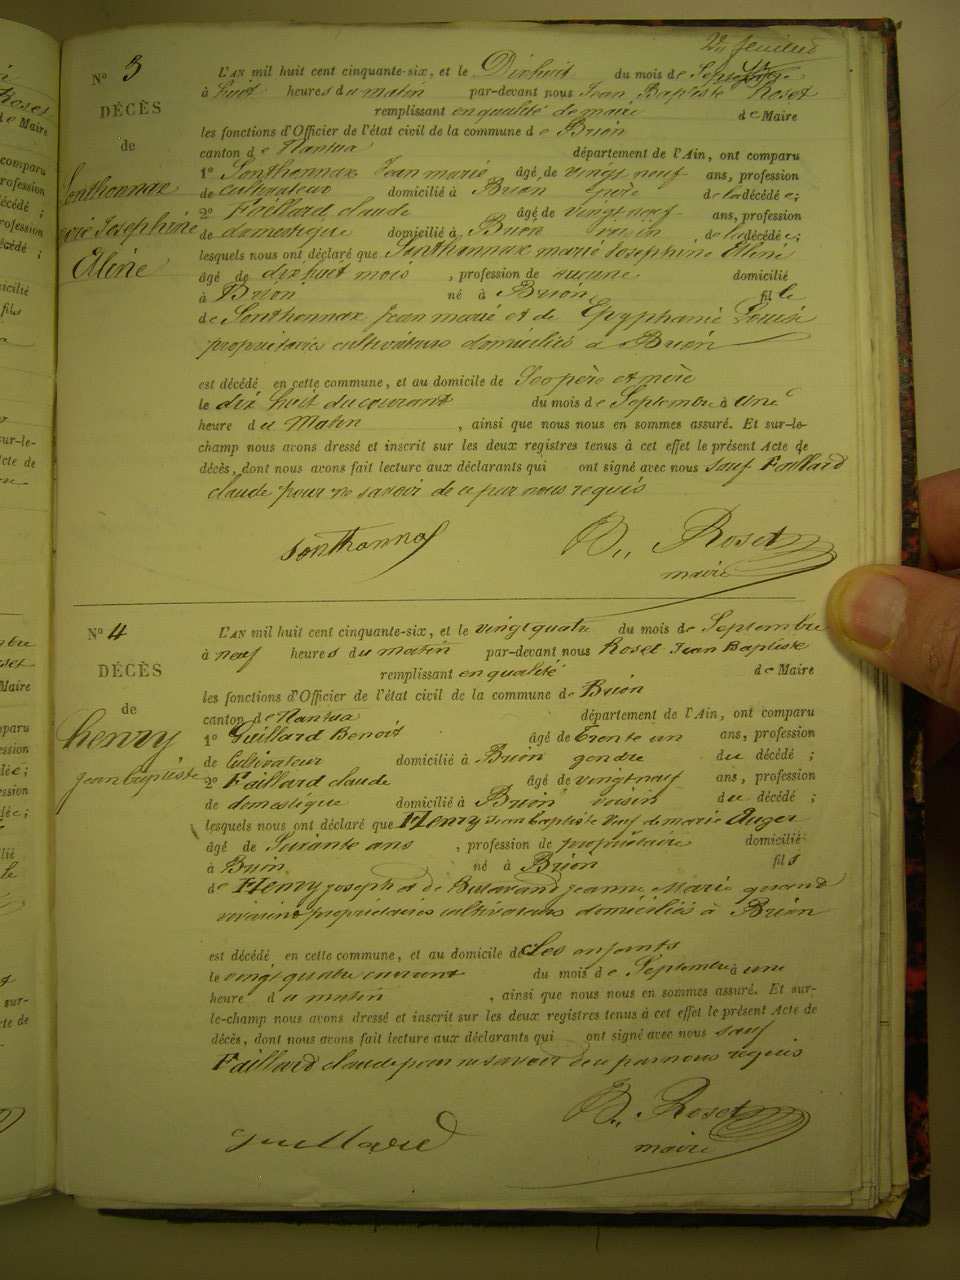 2me feuillet
N° 3
L'AN mil huit cent cinquante-six, et le Dixhuit du mois de Septembre
à huit heures du matin par-devant nous Jean Baptiste Roset
DÉCÈS
remplissant en qualité de maire de Maire
les fonctions d'Officier de l'état civil de la commune de Brion
de
canton de Nantua département de l'Ain, ont comparu
Sonthonnax
1° Sonthonnax Jean marie âgé de vingt neuf ans, profession
de cultivateur domicilié à Brion père de la décédée;
Josephine
2° Faillard claude âgé de vingt neuf ans, profession
de domestique domicilié à Brion voisin de la décédée;
Aline
lesquels nous ont déclaré que Sonthonnax marie Josephine Aline
âgé de dix huit mois , profession de aucune domicilié
à Brion né à Brion fille
de Sonthonnax Jean marie et de Louise
propriétaires cultivateurs domiciliés à Brion
est décédé en cette commune, et au domicile de père et mère
le dix huit du courant du mois de Septembre à une
heure du Matin , ainsi que nous nous en sommes assuré. Et sur-le-
champ nous avons dressé et inscrit sur les deux registres tenus à cet effet le présent Acte de
décès, dont nous avons fait lecture aux déclarants qui ont signé avec nous sauf Faillard
claude pour ne savoir de ce par nous requis
Sonthonnax B. Roset
maire
N° 4
L'AN mil huit cent cinquante-six, et le vingt quatre du mois de Septembre
à neuf heures du matin par-devant nous Roset Jean Baptiste
DÉCÈS
remplissant en qualité de Maire
les fonctions d'Officier de l'état civil de la commune de Brion
de
canton de Nantua département de l'Ain, ont comparu
henry
1° Guillard Benoit âgé de Trente un ans, profession
de Cultivateur domicilié à Brion gendre du décédé;
jean baptiste
2° Faillard claude âgé de vingt neuf ans, profession
de domestique domicilié à Brion voisin du décédé;
lesquels nous ont déclaré que Henry Jean Baptiste veuf de marie Auger
âgé de Soixante ans , profession de propriétaire domicilié
à Brion né à Brion fils
de Henry joseph et de jeanne Marie
propriétaires cultivateurs domiciliés à Brion
est décédé en cette commune, et au domicile de Ses enfants
le vingt quatre courant du mois de Septembre à une
heure du matin , ainsi que nous nous en sommes assuré. Et sur-
le-champ nous avons dressé et inscrit sur les deux registres tenus à cet effet le présent Acte de
décès, dont nous avons fait lecture aux déclarants qui ont signé avec nous sauf
Faillard claude pour ne savoir de ce par nous requis
B. Roset
Guillard maire